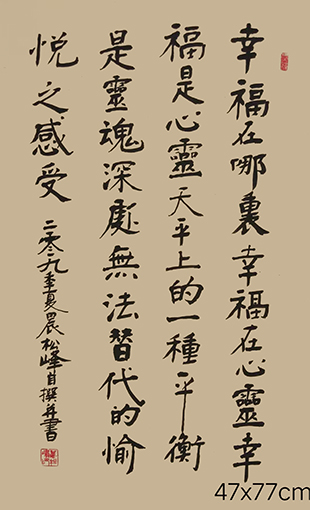 幸福在哪裏幸福在心靈幸
福是心靈天平上的一種平衡
是靈魂深處無法替代的愉
悅之感受 二零一九季夏晨松峰自撰并書
47x77cm